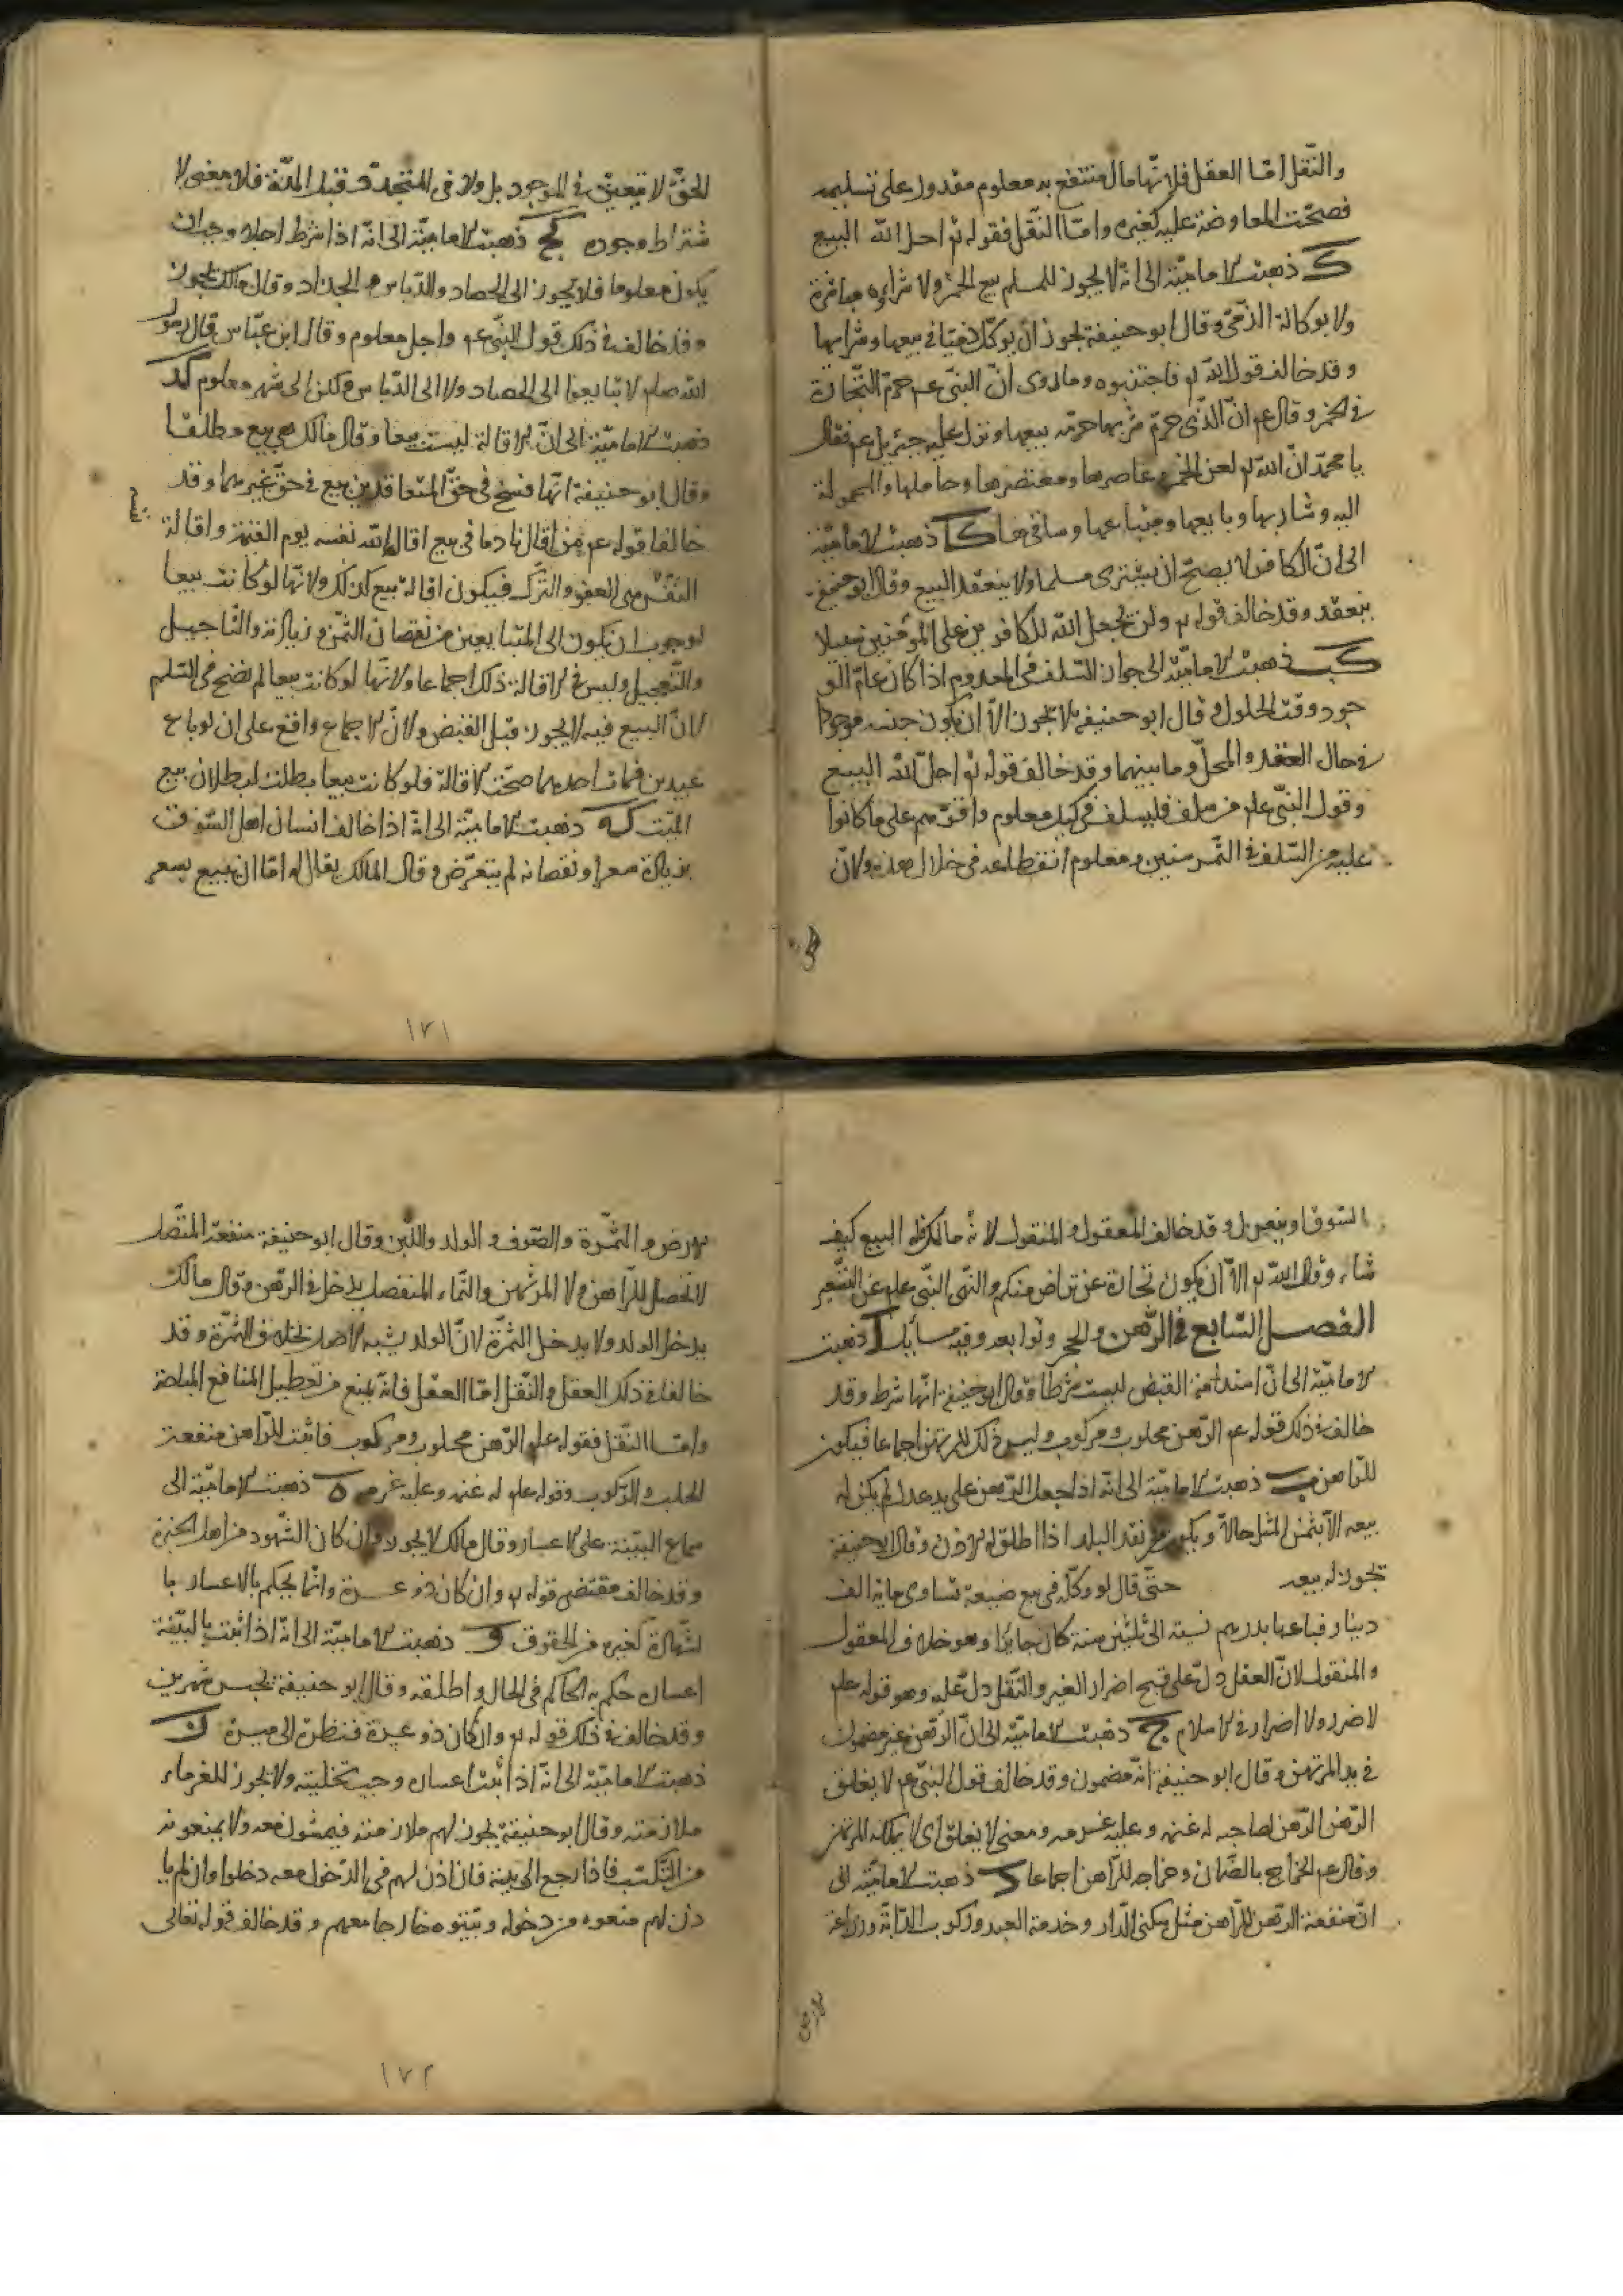 والنّقل امّا العقل فلانّها مال منتفع به معلوم مقدور على تسليمه
فصحّت المعاوضة عليه كغيره وامّا النّقل فقوله تع احل الله البيع
ك ذهبت الاماميّة الى انّه لا يجوز للمسلم بيع الخمر ولا شراوه مباشرة
ولا بوكالة الذّمّى وقال ابو حنيفة يجوز ان يوكّل ذميّا فى بيعها وشرايها
وقد خالف قول الله تع فاجتنبوه وما روى انّ النبىّ عم حرّم التّجارة
فى الخمر وقال عم انّ الّذى حرّم شربها حرّم بيعها ونزل عليه جبرييل عم فقال
يا محمّد انّ الله تع لعن الخمر وعاصرها ومعتصرها وحاملها والمحمولة
اليه وشاربها وبايعها ومبتاعها وساقيها كا ذهبت الاماميّة
الى انّ الكافر لا يصحّ ان يشترى مسلما ولا ينعقد البيع وقال ابو حنيفة
ينعقد وقد خالف قوله تع ولن يجعل الله للكافرين على المؤمنين سبيلا
كب ذهبت الاماميّة الى جواز السّلف فى المعدوم اذا كان عامّ الو
جود وقت الحلول وقال ابو حنيفة لا يجوز الّا ان يكون جنسه موجودا
فى حال العقد والمحلّ وما بينهما وقد خالف قوله تع احلّ الله البيع
وقول النبىّ علم من سلف فليسلف فى كيل معلوم واقرّهم على ما كانوا
عليه من السّلف فى التّمر سنين ومعلوم انقطاعه فى خلال هذه ولانّ
الحق
الحقّ لا يتعيّن فى الموجود بل ولا فى المتجدّد قبل المدّة فلا معنى لا
شتراط وجوده كج ذهبت الاماميّة الى انّه اذا شرط اجلا وجب ان
يكون معلوما فلا يجوز الى الحصاد والدّياس والجذاذ وقال مالك يجوز
وقد خالف فى ذلك قول النبىّ عم واجل معلوم وقال ابن عبّاس قال رسول
الله صلم لا تبايعوا الى الحصاد ولا الى الدّياس ولكن الى شهر معلوم كد
ذهبت الاماميّة الى انّ الاقالة ليست بيعا وقال مالك هى بيع مطلقا
وقال ابو حنيفة انّها فسخ فى حقّ المتعاقدين بيع فى حقّ غيرهما وقد
خالفا قوله عم من اقال نادما فى بيع اقال الله نفسه يوم القيمة واقالة
النّفس هى العفو والتّرك فيكون اقالة بيع كذلك ولانّها لو كانت بيعا
لوجب ان يكون الى المتبايعين من نقصان الثّمن وزيادته والتّاجيل
والتّعجيل وليس فى الاقالة ذلك اجماعا ولانّها لو كانت بيعا لم تصح فى السّلم
لانّ البيع فيه لا يجوز قبل القبض ولانّ الاجماع واقع على ان لو باع
عبدين فمات احدهما صحّت الاقالة فلو كانت بيعا بطلت لبطلان بيع
الميّت كه ذهبت الاماميّة الى انّه اذا خالف انسان اهل السّوق
بزيادة سعر او نقصانه لم يتعرّض وقال المالك يقال له امّا ان تبيع بسعر
١٧١
السّوق او ينعزل وقد خالف المعقول والمنقول لانّه مالك فله البيع كيف
شاء وقال الله تع الّا ان يكون تجارة عن تراض منكم والنهى النّبى علم عن التّسعير
الفصل السّابع فى الرّهن والحجر وتوابعه وفيه مسايل ا ذهبت
الاماميّة الى انّ استدامة القبض ليست شرطا وقال ابو حنيفة انّها شرط وقد
خالف فى ذلك قوله عم الرّهن محلوب ومركوب وليس ذلك للمرتهن اجماعا فيكون
للرّاهن ب ذهبت الاماميّة الى انّه اذا جعل الرّهن على يد عدل لم يكن له
بيعه الّا بثمن المثل حالّا ويكون من نقد البلد اذا اطلق له الاذن وقال ابو حنيفة
يجوز له بيعه حتّى قال لو وكّله فى بيع ضيعة تساوى ماية الف
دينار فباعها بدرهم نسية الى ثلثين سنة كان جايزا وهو خلاف المعقول
والمنقول لانّ العقل دلّ على قبح اضرار الغير والنّقل دلّ عليه وهو قوله علم
لا ضرر ولا اضرار فى الاسلام ج ذهبت الاماميّة الى انّ الرّهن غير مضمون
فى يد المرتهن وقال ابو حنيفة انّه مضمون وقد خالف قول النبىّ عم لا يغلق
الرّهن الرّهن لصاحبه له غنمه وعليه غرمه ومعنى لا يغلق اى لا يملكه المرتهن
وقال عم الخراج بالضّمان وخراجه للرّاهن اجماعا د ذهبت الاماميّة الى
انّ منفعة الرّهن للرّاهن مثل سكنى الدّار وخدمة العبد وركوب الدّابّة وزراعة
الارض
الارض والثّمرة والصّوف والولد واللّبن وقال ابو حنيفة منفعة المتّصل
لا تحصل للرّاهن ولا المرتهن والنّماء المنفصل يدخل فى الرّهن وقال مالك
يدخل الولد ولا يدخل الثّمرة لانّ الولد يشبه الاصل بخلاف الثّمرة وقد
خالفا فى ذلك العقل والنّقل امّا العقل فانّه يمنع من تعطيل المنافع المباحة
وامّا النّقل فقوله علم الرّهن محلوب ومركوب فاثبت للرّاهن منفعة
الحلب والرّكوب وقوله علم له غنمه وعليه غرمه ه ذهبت الاماميّة الى
سماع البيّنة على الاعسار وقال مالك لا يجوز وان كان الشّهود من اهل الخبرة
وقد خالف مقتضى قوله تع وان كان ذو عسرة وانّما يحكم بالاعسار با
لشّهادة كغيره من الحقوق و ذهبت الاماميّة الى انّه اذا اثبت بالبيّنة
اعساره حكم به الحاكم فى الحال واطلقه وقال ابو حنيفة يحبس شهرين
وقد خالف فى ذلك قوله تع وان كان ذو عسرة فنظرة الى ميسرة ز
ذهبت الاماميّة الى انّه اذا ثبت اعساره وجب تخليته ولا يجوز للغرماء
ملازمته وقال ابو حنيفة يجوز لهم ملازمته فيمشون معه ولا يمنعونه
من التّكسّب فاذا رجع الى بيته فان اذن لهم فى الدّخول معه دخلوا وان لم يا
ذن لهم منعوه من دخوله وبيّتوه خارجا معهم وقد خالف قوله تعالى
١٧٢